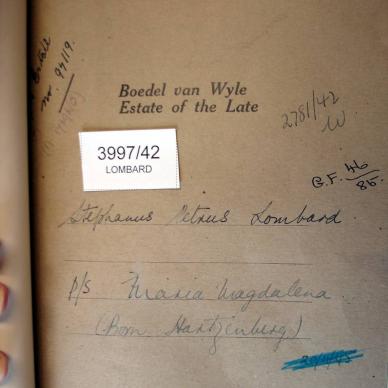 Estate
no. 94119.
Boedel van Wyle
Estate of the Late
2781/42
3997/42
LOMBARD
G.F. 46/85.
Stephanus Petrus Lombard.
p/s Maria Magdalena
(Born Hartzenberg)